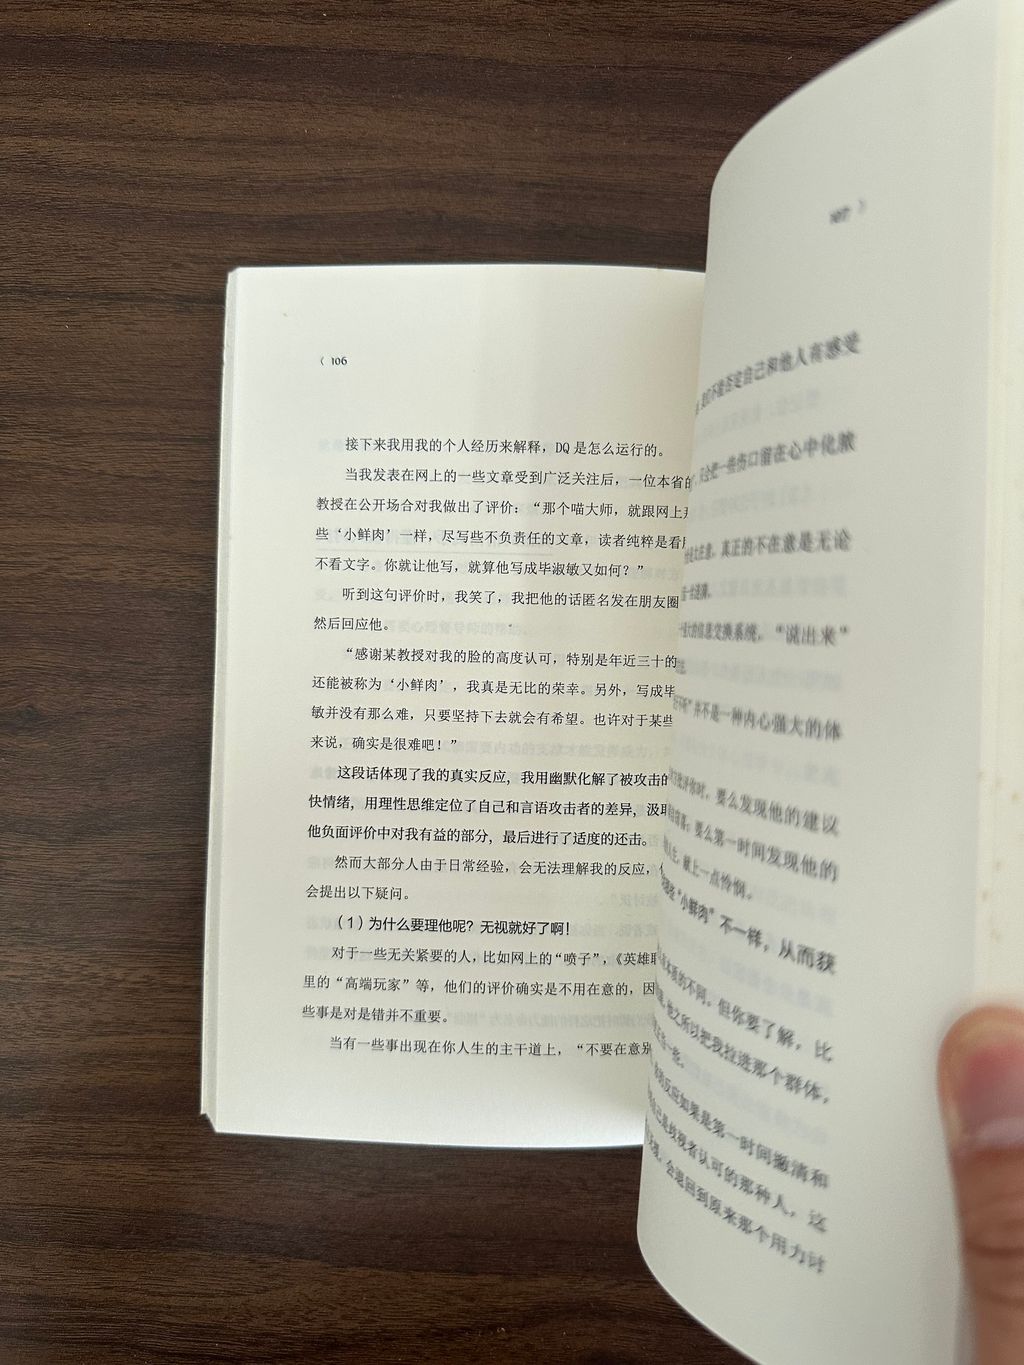 〈 106
接下来我用我的个人经历来解释，DQ 是怎么运行的。
当我发表在网上的一些文章受到广泛关注后，一位本省的
教授在公开场合对我做出了评价：“那个喵大师，就跟网上
些‘小鲜肉’一样，尽写些不负责任的文章，读者纯粹是看
不看文字。你就让他写，就算他写成毕淑敏又如何？”
听到这句评价时，我笑了，我把他的话匿名发在朋友圈
然后回应他。
“感谢某教授对我的脸的高度认可，特别是年近三十的
还能被称为‘小鲜肉’，我真是无比的荣幸。另外，写成毕
敏并没有那么难，只要坚持下去就会有希望。也许对于某些
来说，确实是很难吧！”
这段话体现了我的真实反应，我用幽默化解了被攻击的
快情绪，用理性思维定位了自己和言语攻击者的差异，汲取
他负面评价中对我有益的部分，最后进行了适度的还击。
然而大部分人由于日常经验，会无法理解我的反应，
会提出以下疑问。
（1）为什么要理他呢？无视就好了啊！
对于一些无关紧要的人，比如网上的“喷子”，《英雄联
里的“高端玩家”等，他们的评价确实是不用在意的，因
些事是对是错并不重要。
当有一些事出现在你人生的主干道上，“不要在意别
107 〉
不能否定自己和他人有感受
会把一些伤口留在心中化脓
在意，真正的不在意是无论
的信息交换系统，“说出来”
并不是一种内心强大的体
批评你时，要么发现他的建议
要么第一时间发现他的
献上一点怜悯。
“小鲜肉”不一样，从而获
的不同。但你要了解，比
他之所以把我拉进那个群体，
反应如果是第一时间撇清和
是歧视者认可的那种人，这
会退回到原来那个用力讨